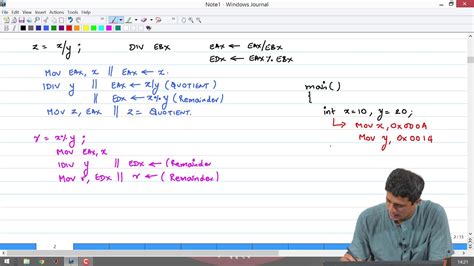 Note1 - Windows Journal
File Edit View Insert Actions Tools Help
z = x/y ;    DIV EBX    EAX ← EAX/EBX
EDX ← EAX % EBX
Mov EAX, x || EAX ← x.
IDIV y || EAX ← x/y (QUOTIENT)
|| EDX ← x%y (Remainder)
Mov z, EAX || z = QUOTIENT.
main()
{
int x=10, y=20;
↳ Mov x, 0x000A
Mov y, 0x0014
r = x% y ;
Mov EAX, x
IDIV y || EDX ← (Remainder
Mov r, EDX || r ← (Remainder)
2 / 15
2
14:21